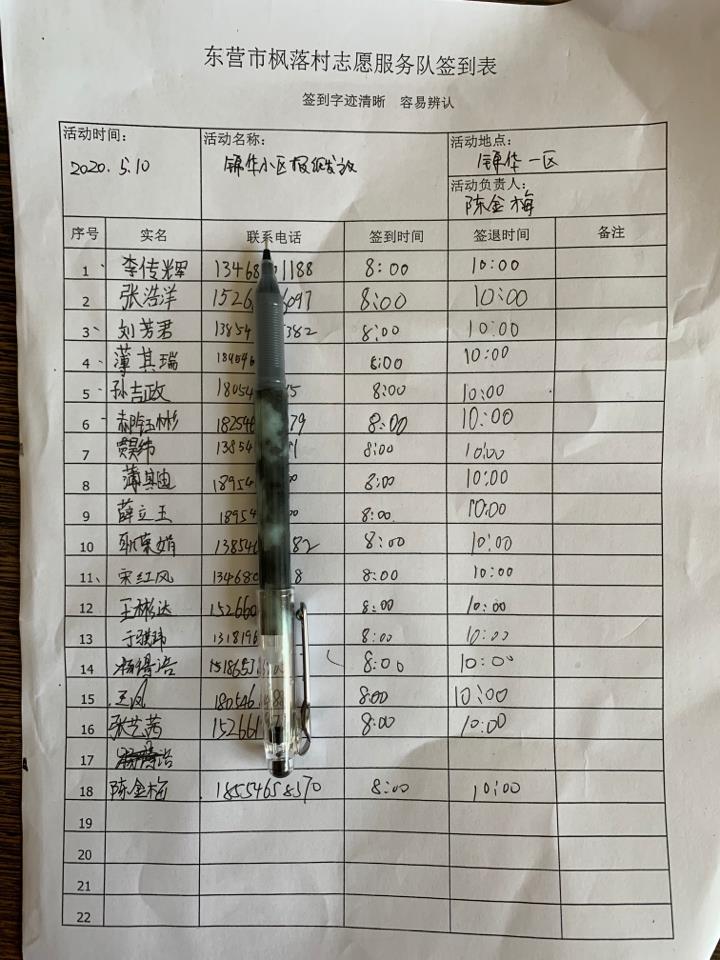 东营市枫落村志愿服务队签到表
签到字迹清晰 容易辨认
活动时间: 活动名称: 活动地点:
2020.5.10 锦华小区报纸发放 锦华一区
活动负责人:
陈金梅
序号 实名 联系电话 签到时间 签退时间 备注
1、 李传辉 13468 1188 8:00 10:00
2 张浩洋 1526 6097 8:00 10:00
3、 刘芳君 13854 382 8:00 10:00
4、 薄其瑞 8:00 10:00
5、 孙吉政 18054 5 8:00 10:00
6、 郝钰彬 182546 79 8:00 10:00
7 13854 1 8:00 10:00
8 薄其迪 18954 8:00 10:00
9 薛立玉 18954 00 8:00 10:00
10 耿荣娟 138546 82 8:00 10:00
11、 宋红风 134680 8 8:00 10:00
12 王彬达 152660 8:00 10:00
13 1318196 8:00 10:00
14 杨得浩 8:00 10:00
15 王凤 180546 8:00 10:00
16 张艺茜 152661 8:00 10:00
17
18 陈金梅 18554658370 8:00 10:00
19
20
21
22